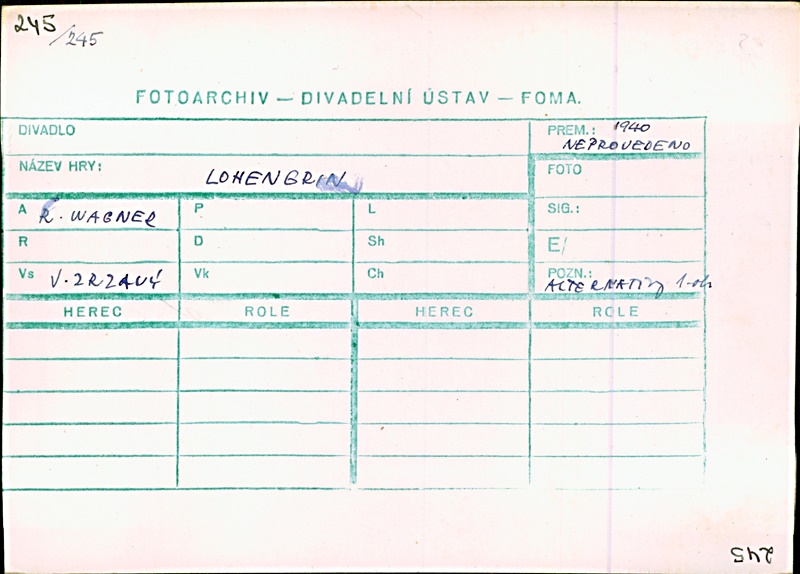 245
/245
FOTOARCHIV — DIVADELNÍ ÚSTAV — FOMA.
DIVADLO
PREM.: 1940
NEPROVEDENO
NÁZEV HRY: LOHENGRIN
FOTO
A R. WAGNER P L SIG.:
R D Sh E/
Vs V. ZRZAVÝ Vk Ch POZN.:
ALTERNATIVY 1.
HEREC ROLE HEREC ROLE
245